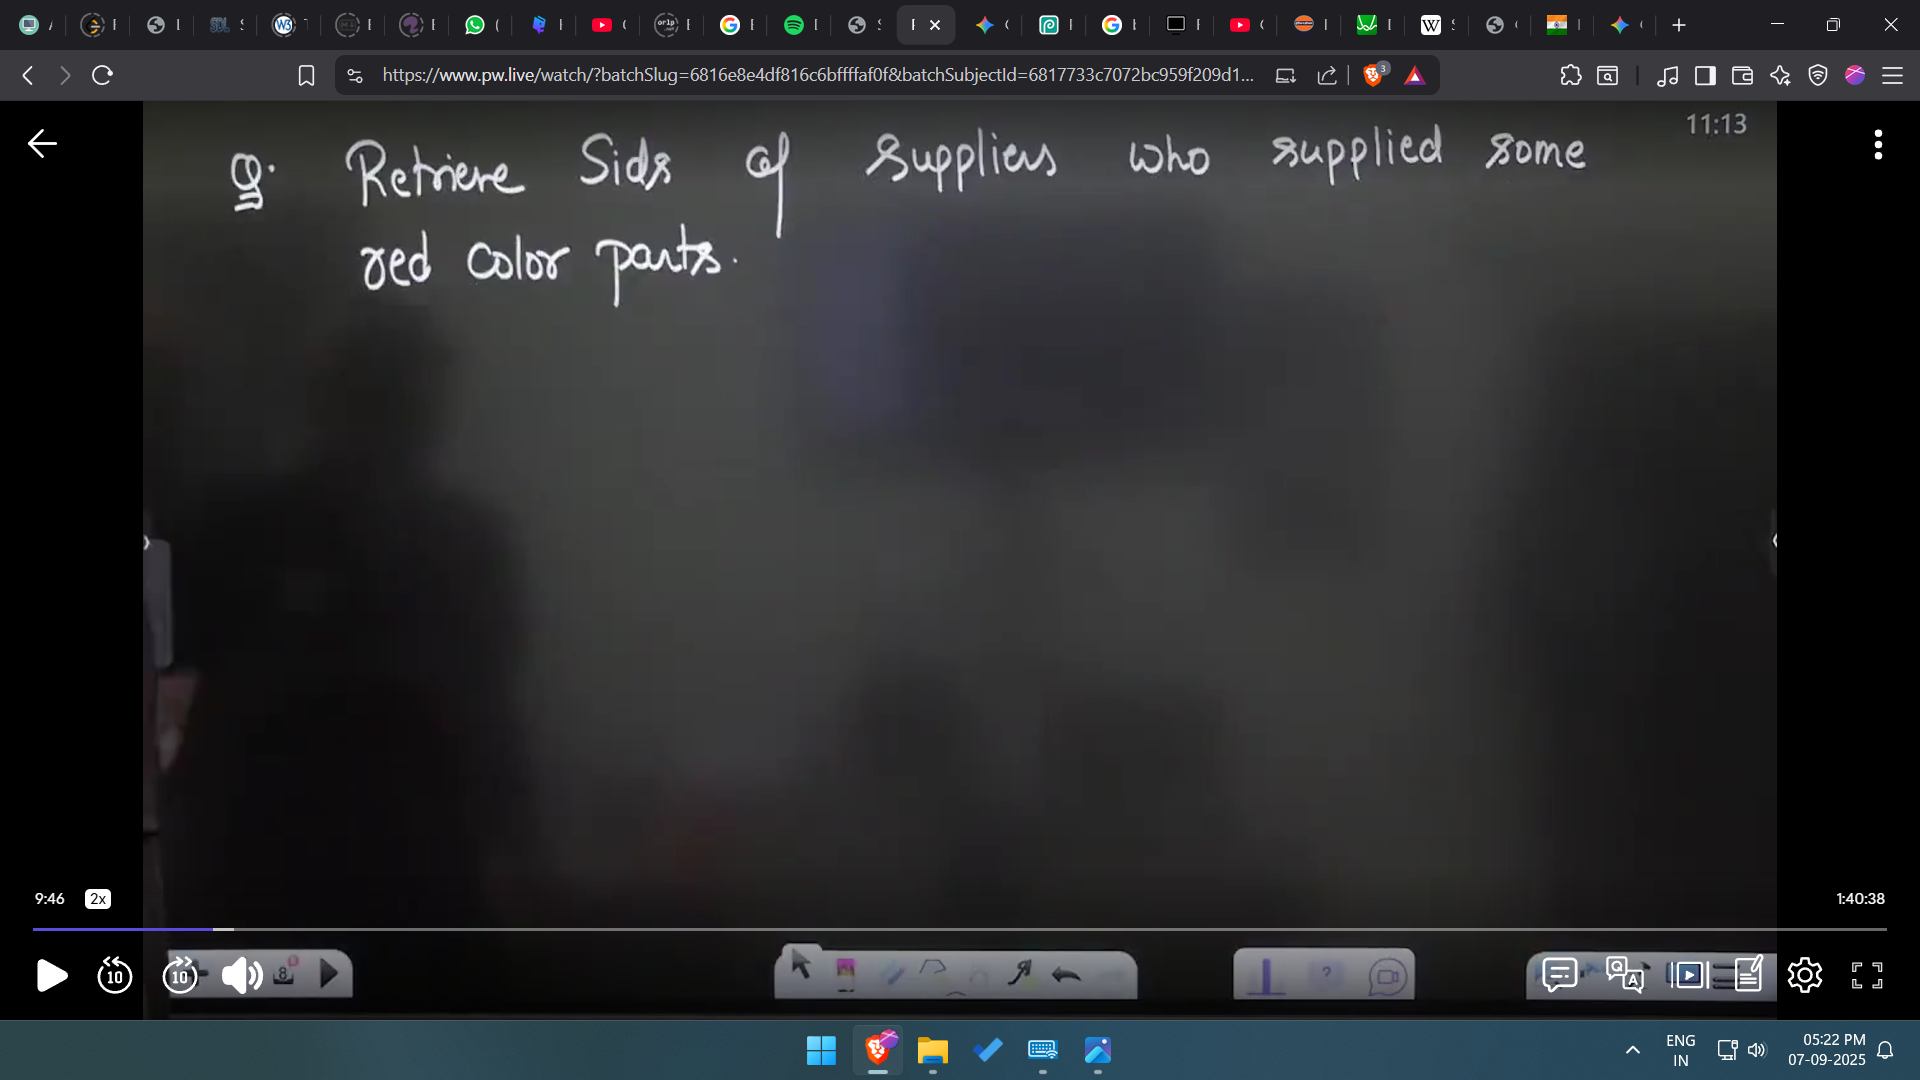 https://www.pw.live/watch/?batchSlug=6816e8e4df816c6bffffaf0f&batchSubjectId=6817733c7072bc959f209d1...
3
11:13
Q. Retrieve Sids of suppliers who supplied some
red color parts.
9:46 2x 1:40:38
10 10 8 ? Q A
ENG 05:22 PM
IN 07-09-2025